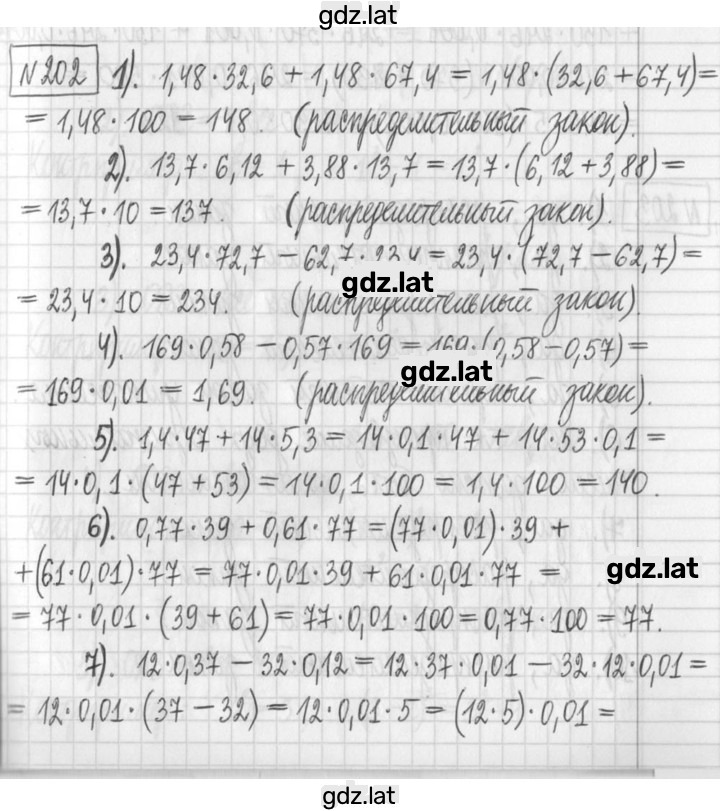 gdz.lat
№202 1). 1,48·32,6 + 1,48·67,4 = 1,48·(32,6+67,4)=
= 1,48·100 = 148. (распределительный закон).
2). 13,7·6,12 + 3,88·13,7 = 13,7·(6,12+3,88)=
= 13,7·10 = 137. (распределительный закон).
3). 23,4·72,7 − 62,7·23,4 = 23,4·(72,7−62,7)=
gdz.lat
= 23,4·10 = 234. (распределительный закон).
4). 169·0,58 − 0,57·169 = 169·(0,58−0,57)=
gdz.lat
= 169·0,01 = 1,69. (распределительный закон).
5). 1,4·47 + 14·5,3 = 14·0,1·47 + 14·53·0,1 =
= 14·0,1·(47+53) = 14·0,1·100 = 1,4·100 = 140.
6). 0,77·39 + 0,61·77 = (77·0,01)·39 +
+(61·0,01)·77 = 77·0,01·39 + 61·0,01·77 =
gdz.lat
= 77·0,01·(39+61) = 77·0,01·100 = 0,77·100 = 77.
7). 12·0,37 − 32·0,12 = 12·37·0,01 − 32·12·0,01 =
= 12·0,01·(37−32) = 12·0,01·5 = (12·5)·0,01 =
gdz.lat